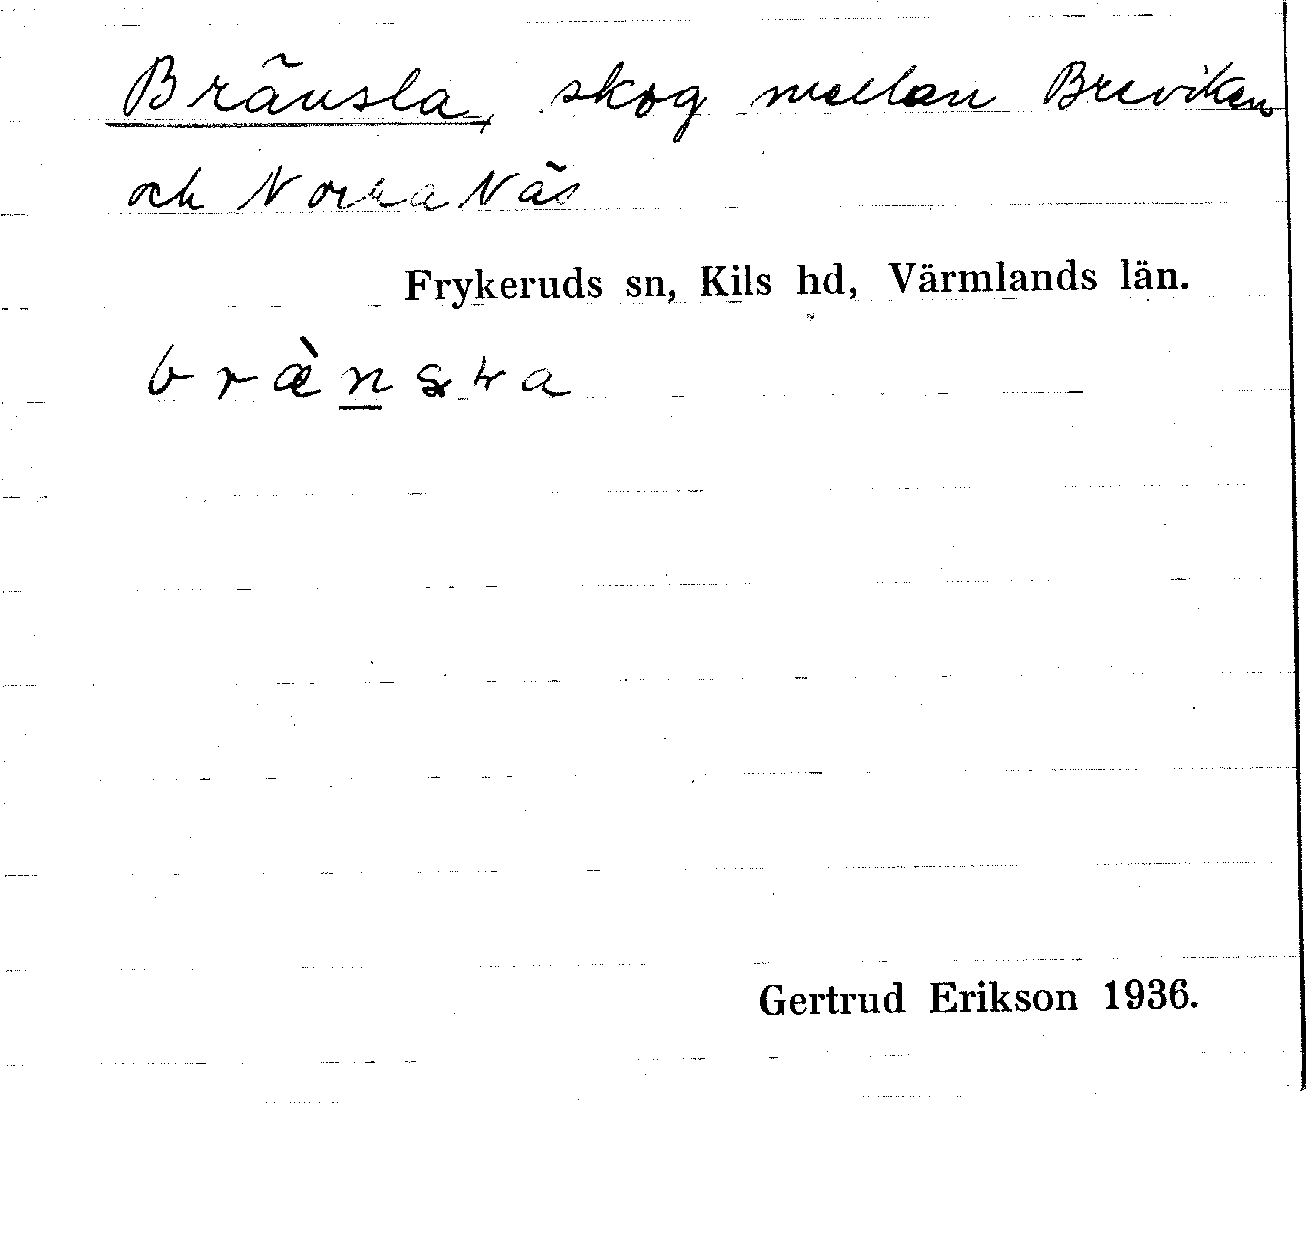 Bränsla, skog mellan Breviken
och Norra Näs
Frykeruds sn, Kils hd, Värmlands län.
Gertrud Erikson 1936.